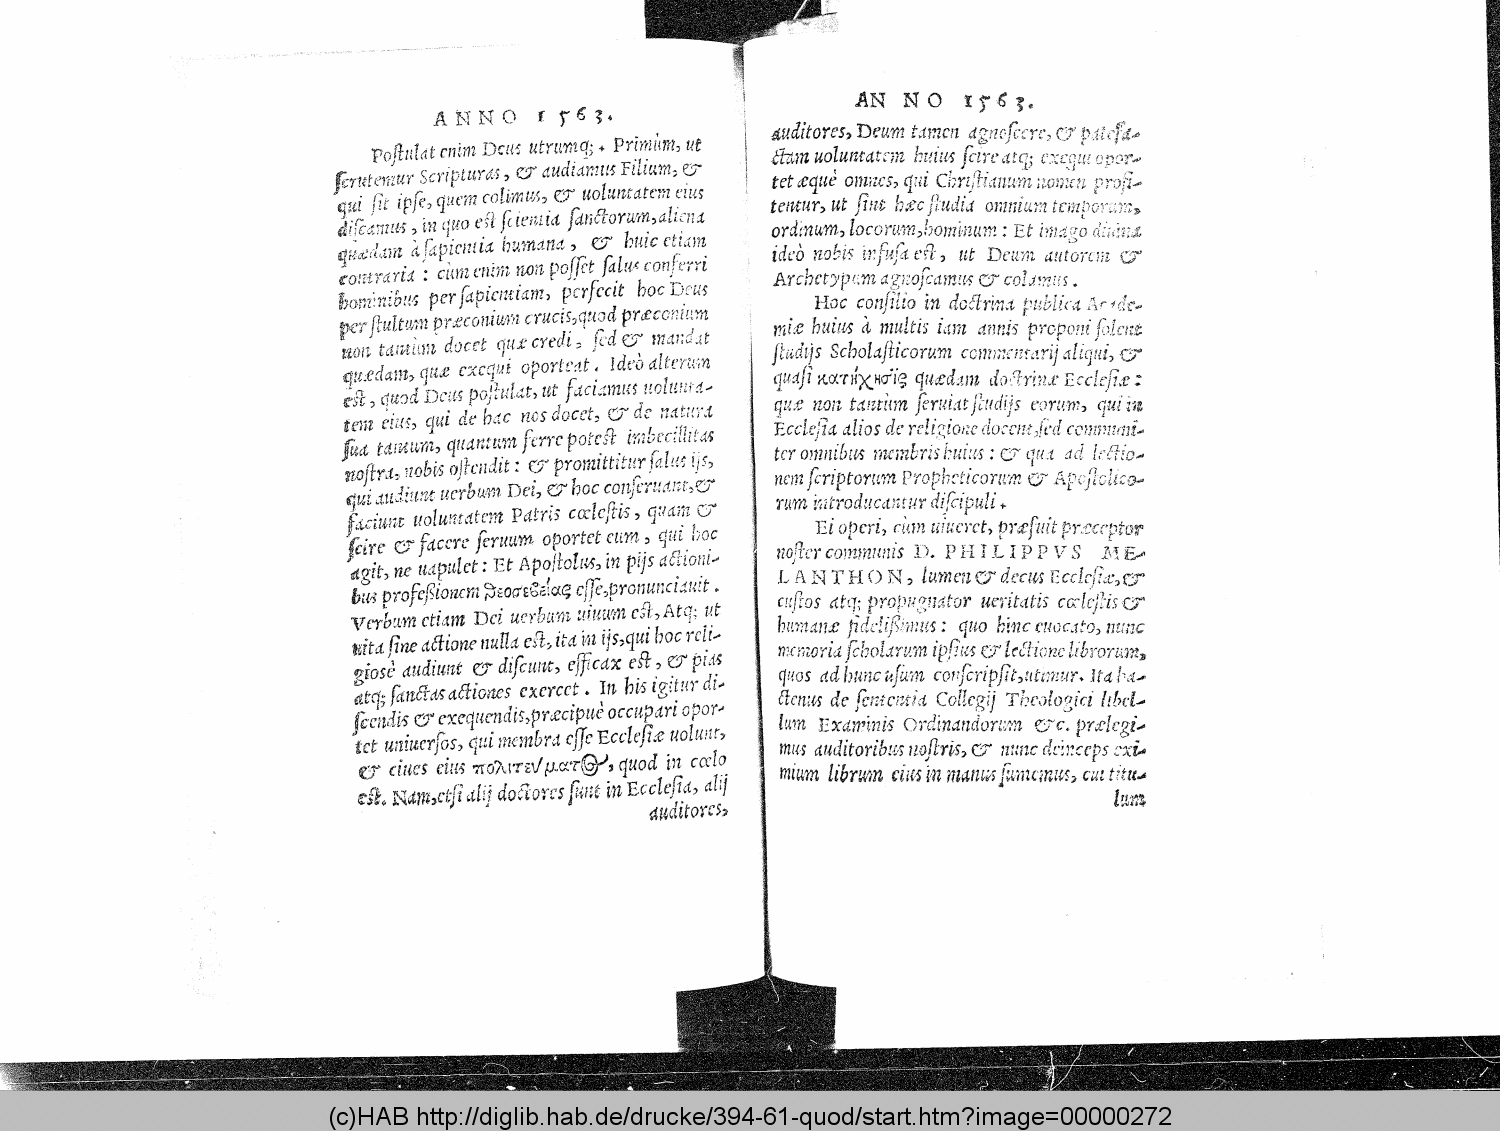 ANNO 1563.
Poſtulat enim Deus utrumq;. Primùm, ut
ſcrutemur Scripturas, & audiamus Filium, &
qui ſit ipſe, quem colimus, & uoluntatem eius
diſcamus, in quo eſt ſcientia ſanctorum, aliena
quædam à ſapientia humana, & huic etiam
contraria: cùm enim non poſſet ſalus conferri
hominibus per ſapientiam, perfecit hoc Deus
per ſtultum præconium crucis, quod præconium
non tantùm docet quæ credi, ſed & mandat
quædam, quæ exequi oporteat. Ideò alterum
eſt, quod Deus poſtulat, ut faciamus uolunta-
tem eius, qui de hac nos docet, & de natura
ſua tantum, quantum ferre poteſt imbecillitas
noſtra, nobis oſtendit: & promittitur ſalus ijs,
qui audiunt uerbum Dei, & hoc conſeruant, &
faciunt uoluntatem Patris cœleſtis, quam &
ſcire & facere ſeruum oportet eum, qui hoc
agit, ne uapulet: Et Apoſtolus, in pijs actioni-
bus profeßionem θεοσεβείας eſſe, pronunciauit.
Verbum etiam Dei uerbum uiuum eſt, Atq; ut
uita ſine actione nulla eſt, ita in ijs, qui hoc reli-
gioſè audiunt & diſcunt, efficax eſt, & pias
atq; ſanctas actiones exercet. In his igitur di-
ſcendis & exequendis, præcipuè occupari opor-
tet uniuerſos, qui membra eſſe Eccleſiæ uolunt,
& ciues eius πολιτεύματος, quod in cœlo
eſt. Nam, etſi alij doctores ſunt in Eccleſia, alij
auditores,
ANNO 1563.
auditores, Deum tamen agnoſcere, & patefa-
ctam uoluntatem huius ſcire atq; exequi opor-
tet æquè omnes, qui Chriſtianum nomen profi-
tentur, ut ſint hæc ſtudia omnium temporum,
ordinum, locorum, hominum: Et imago diuina
ideò nobis infuſa eſt, ut Deum autorem &
Archetypum agnoſcamus & colamus.
Hoc conſilio in doctrina publica Acade-
miæ huius à multis iam annis proponi ſolent
ſtudijs Scholaſticorum commentarij aliqui, &
quaſi κατήχησις quædam doctrinæ Eccleſiæ:
quæ non tantùm ſeruiat ſtudijs eorum, qui in
Eccleſia alios de religione docent, ſed communi-
ter omnibus membris huius: & qua ad lectio-
nem ſcriptorum Propheticorum & Apoſtolico-
rum introducantur diſcipuli.
Ei operi, cùm uiueret, præfuit præceptor
noſter communis D. PHILIPPVS ME-
LANTHON, lumen & decus Eccleſiæ, &
cuſtos atq; propugnator ueritatis cœleſtis &
humanæ fidelißimus: quo hinc euocato, nunc
memoria ſcholarum ipſius & lectione librorum,
quos ad hunc uſum conſcripſit, utimur. Ita ha-
ctenus de ſententia Collegij Theologici libel-
lum Examinis Ordinandorum &c. prælegi-
mus auditoribus noſtris, & nunc deinceps exi-
mium librum eius in manus ſumemus, cui titu-
lum
(c)HAB http://diglib.hab.de/drucke/394-61-quod/start.htm?image=00000272